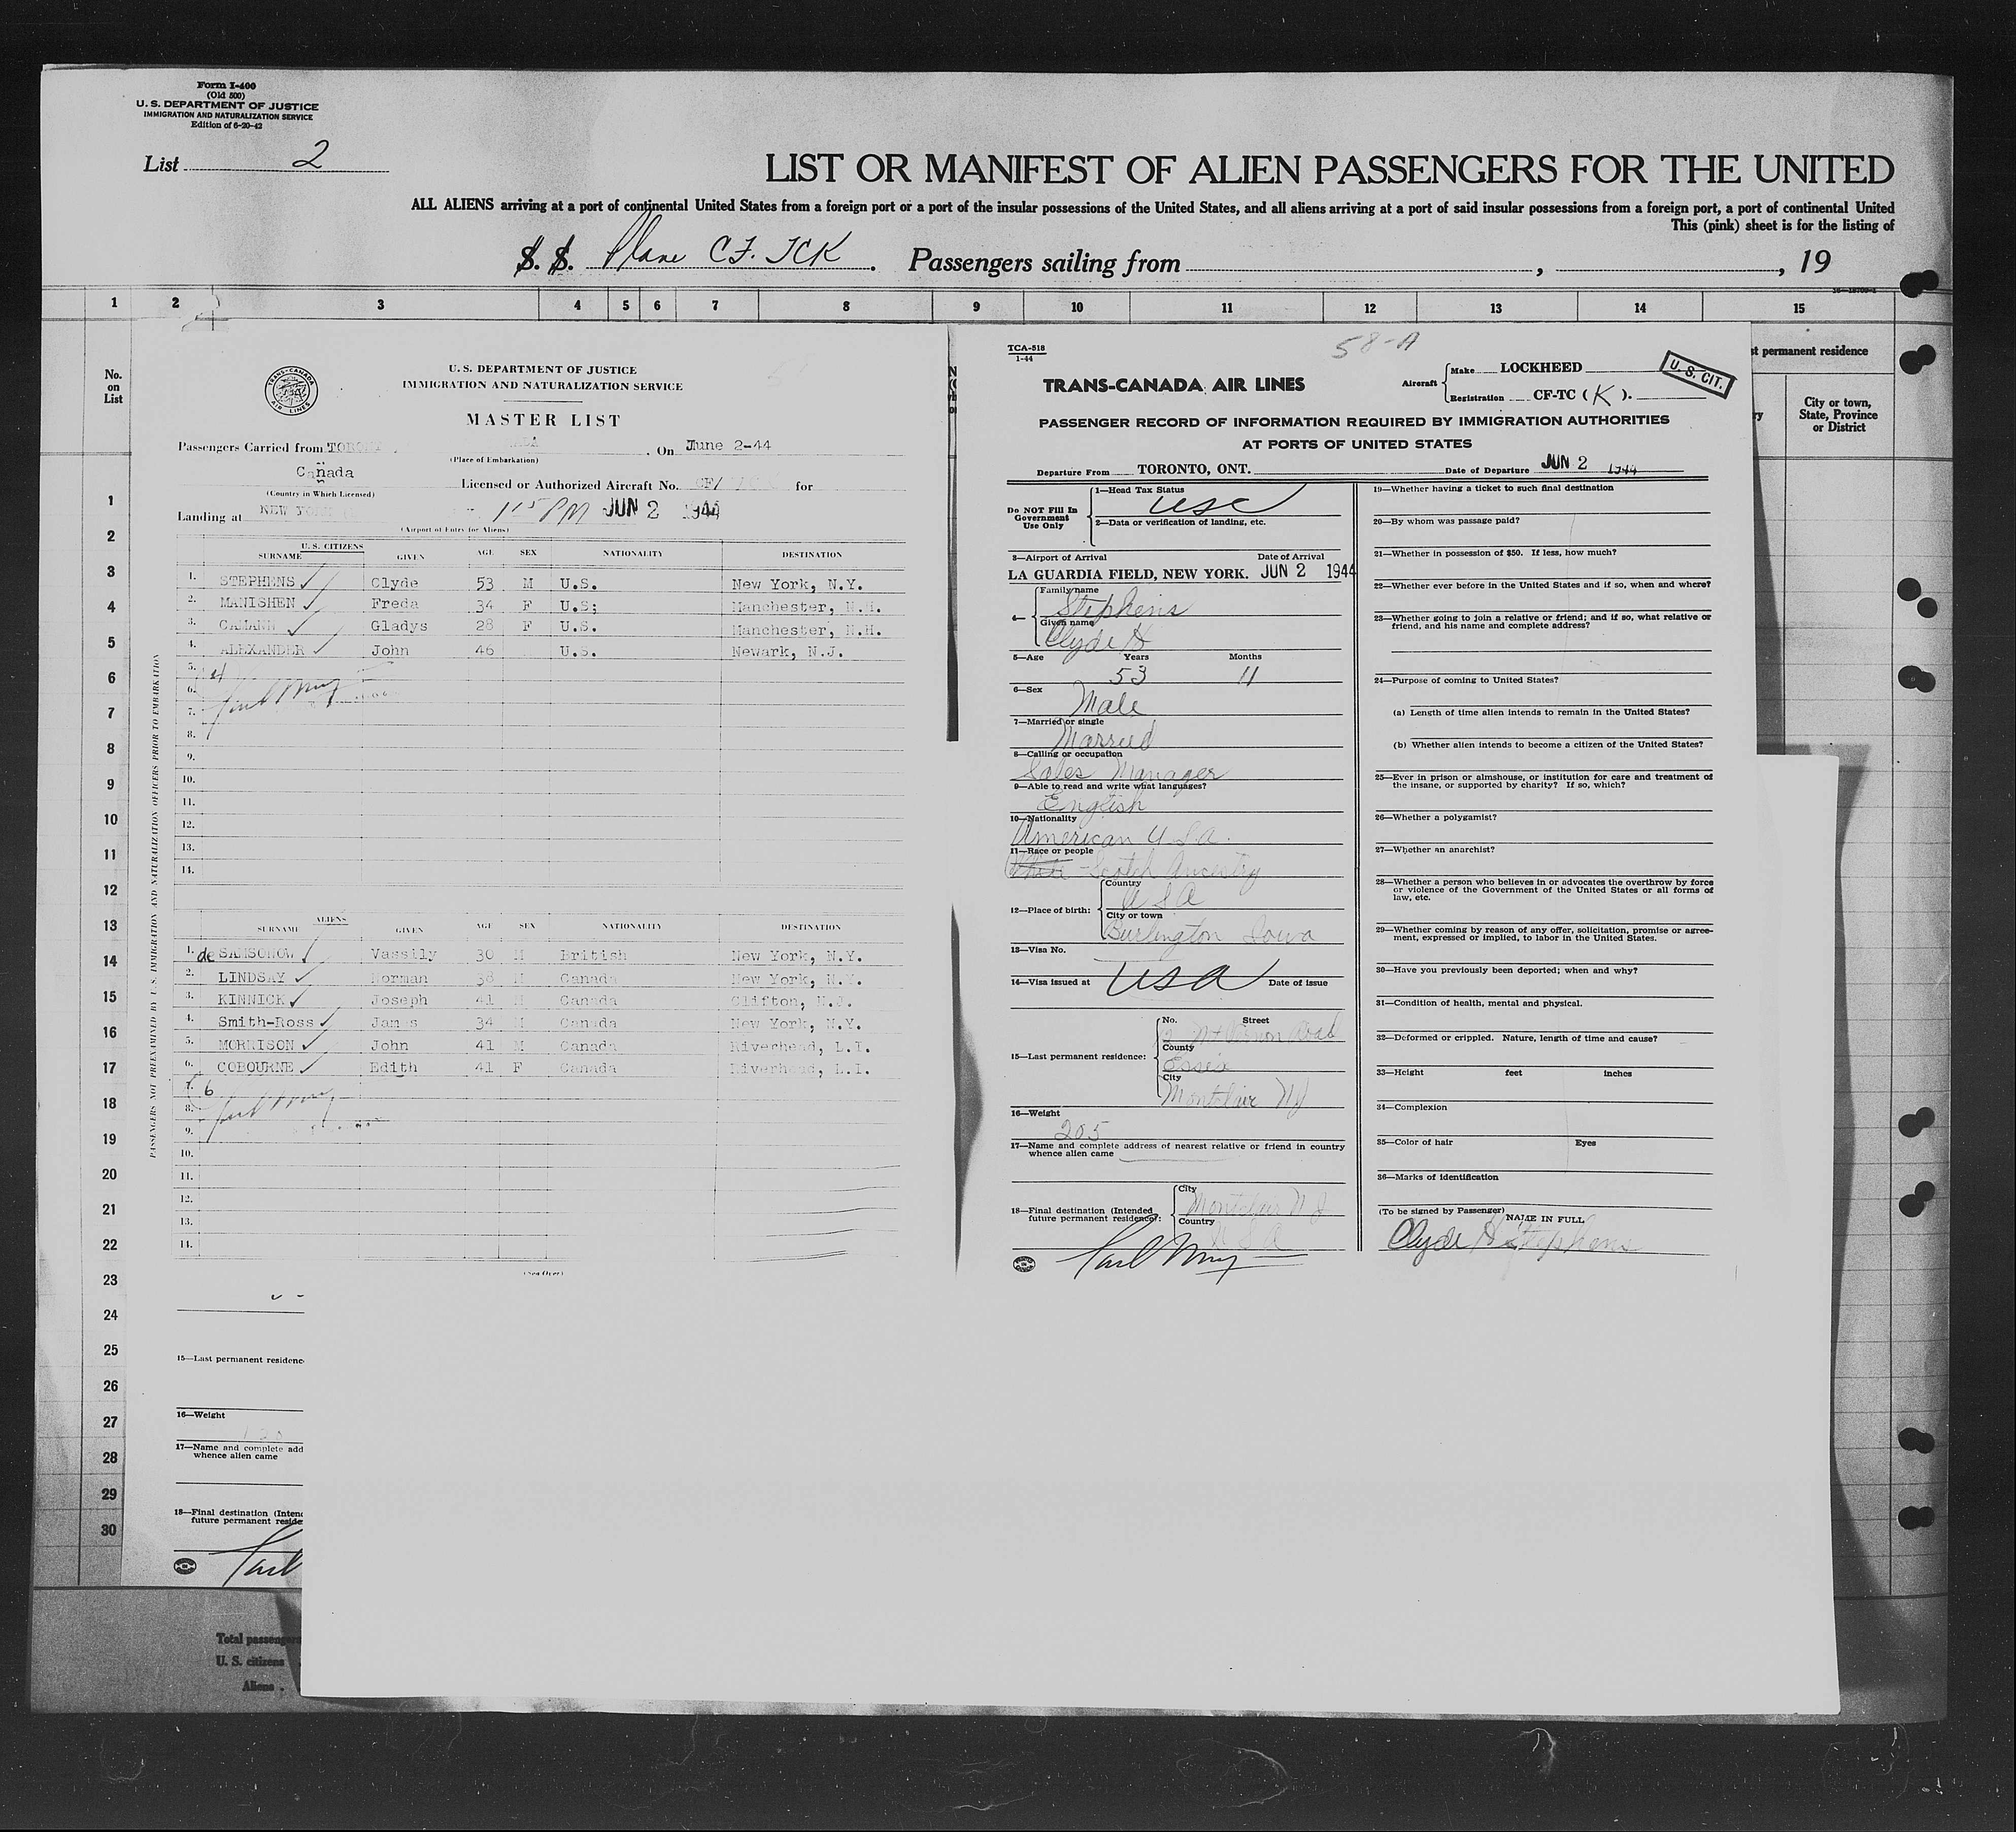 Form I-400
(Old 500)
U. S. DEPARTMENT OF JUSTICE
IMMIGRATION AND NATURALIZATION SERVICE
Edition of 6-20-42
List 2
LIST OR MANIFEST OF ALIEN PASSENGERS FOR THE UNITED
ALL ALIENS arriving at a port of continental United States from a foreign port or a port of the insular possessions of the United States, and all aliens arriving at a port of said insular possessions from a foreign port, a port of continental United
This (pink) sheet is for the listing of
S. S. Plane CF. TCK. Passengers sailing from , , 19
1 2 3 4 5 6 7 8 9 10 11 12 13 14 15
No.
on
List
1
2
3
4
5
6
7
8
9
10
11
12
13
14
15
16
17
18
19
20
21
22
23
24
25
26
27
28
29
30
TRANS-CANADA
AIR LINES
U. S. DEPARTMENT OF JUSTICE
IMMIGRATION AND NATURALIZATION SERVICE
MASTER LIST
Passengers Carried from . On June 2-44
(Place of Embarkation)
Canada
(Country in Which Licensed)
Licensed or Authorized Aircraft No. CF/ for
Landing at NEW YORK 1 15 PM JUN 2 1944
(Airport of Entry for Aliens)
U. S. CITIZENS
SURNAME GIVEN AGE SEX NATIONALITY DESTINATION
1. STEPHENS Clyde 53 M U.S. New York, N.Y.
2. MANISHEN Freda 34 F U.S; Manchester, N.H.
3. CAMANN Gladys 28 F U.S. Manchester, N.H.
4. ALEXANDER John 46 U.S. Newark, N.J.
5. 4
6.
7.
8.
9.
10.
11.
12.
13.
14.
ALIENS
SURNAME GIVEN AGE SEX NATIONALITY DESTINATION
1. de SAMSONOW Vassily 30 M British New York, N.Y.
2. LINDSAY Norman 38 M Canada New York, N.Y.
3. KINNICK Joseph 41 M Canada Clifton, N.J.
4. Smith-Ross James 34 M Canada New York, N.Y.
5. MORRISON John 41 M Canada Riverhead, L.I.
6. COBOURNE Edith 41 F Canada Riverhead, L.I.
7. 6
8.
9.
10.
11.
12.
13.
14.
(See Over)
PASSENGERS NOT PREEXAMINED BY U.S. IMMIGRATION AND NATURALIZATION OFFICERS PRIOR TO EMBARKATION
15—Last permanent residence
16—Weight
17—Name and complete add
whence alien came
18—Final destination (Intend
future permanent reside
Total passengers
U. S. citizens
Aliens
TCA-518
1-44
58-A
TRANS-CANADA AIR LINES
Aircraft
Make LOCKHEED
Registration CF-TC ( K ).
U. S. CIT.
PASSENGER RECORD OF INFORMATION REQUIRED BY IMMIGRATION AUTHORITIES
AT PORTS OF UNITED STATES
Departure From TORONTO, ONT. Date of Departure JUN 2 1944
Do NOT Fill In
Government
Use Only
1—Head Tax Status
USC
2—Data or verification of landing, etc.
3—Airport of Arrival Date of Arrival
LA GUARDIA FIELD, NEW YORK. JUN 2 1944
4—
Family name
Stephens
Given name
Clyde H
5—Age Years Months
53 11
6—Sex
Male
7—Married or single
Married
8—Calling or occupation
Sales Manager
9—Able to read and write what languages?
English
10—Nationality
American U.S.A.
11—Race or people
White - Scotch Ancestry
12—Place of birth:
Country
U S A
City or town
Burlington Iowa
13—Visa No.
USA
14—Visa issued at Date of issue
15—Last permanent residence:
No. Street
Mt Vernon Road
County
Essex
City
Montclair NJ
16—Weight
205
17—Name and complete address of nearest relative or friend in country
whence alien came
18—Final destination (Intended
future permanent residence):
City
Montclair N J
Country
U S A
19—Whether having a ticket to such final destination
20—By whom was passage paid?
21—Whether in possession of $50. If less, how much?
22—Whether ever before in the United States and if so, when and where?
23—Whether going to join a relative or friend; and if so, what relative or
friend, and his name and complete address?
24—Purpose of coming to United States?
(a) Length of time alien intends to remain in the United States?
(b) Whether alien intends to become a citizen of the United States?
25—Ever in prison or almshouse, or institution for care and treatment of
the insane, or supported by charity? If so, which?
26—Whether a polygamist?
27—Whether an anarchist?
28—Whether a person who believes in or advocates the overthrow by force
or violence of the Government of the United States or all forms of
law, etc.
29—Whether coming by reason of any offer, solicitation, promise or agree-
ment, expressed or implied, to labor in the United States.
30—Have you previously been deported; when and why?
31—Condition of health, mental and physical.
32—Deformed or crippled. Nature, length of time and cause?
33—Height feet inches
34—Complexion
35—Color of hair Eyes
36—Marks of identification
(To be signed by Passenger)
NAME IN FULL
Clyde H Stephens
st permanent residence
City or town,
State, Province
or District